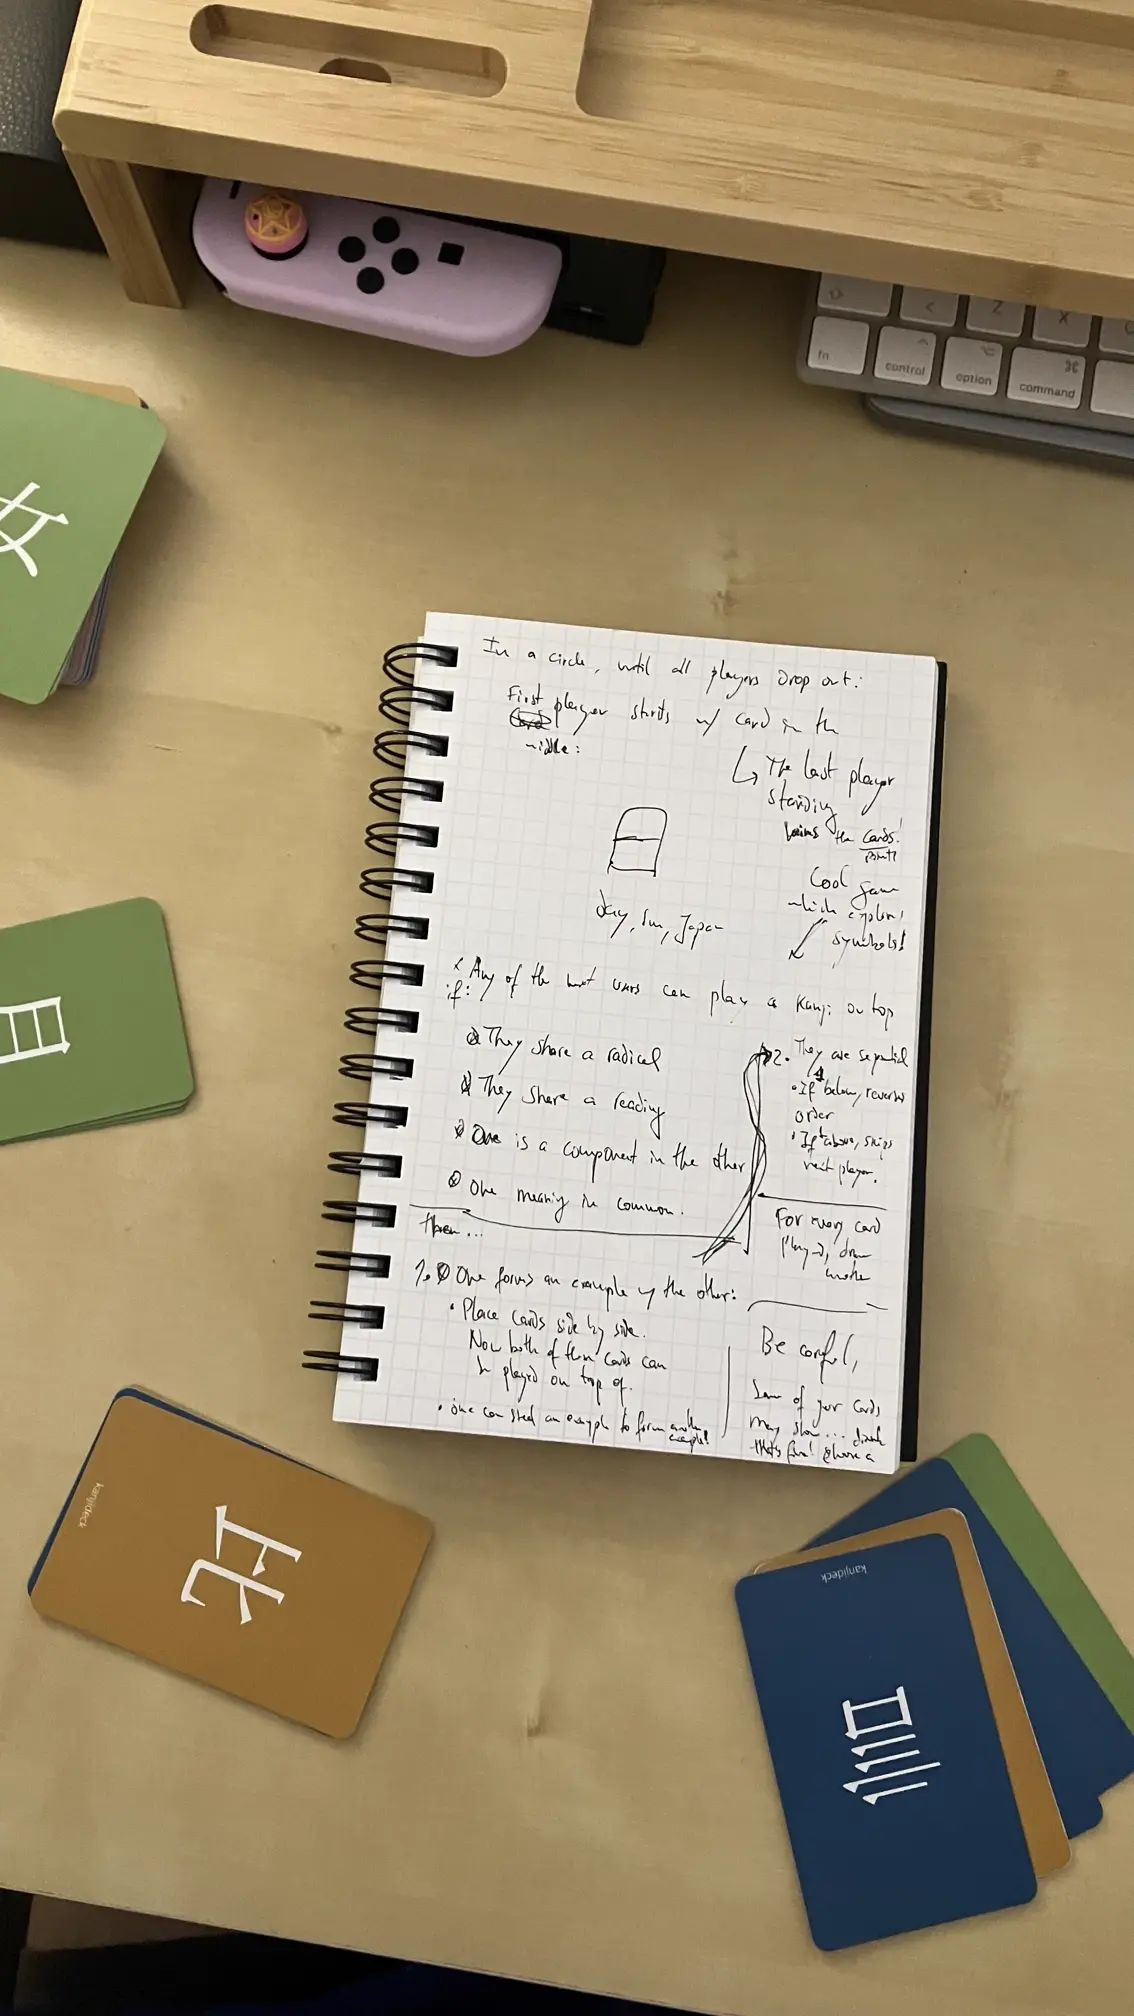 fn
control
option
command
⌘
⌥
^
<
Z
X
女
日
In a circle, until all players drop out:
First player starts w/ card in the
middle:
↳ The last player
standing
wins the cards!
points
Cool game
which explores
symbols!
day, sun, Japan
Any of the next users can play a Kanji on top
if:
They share a radical
They share a reading
One is a component in the other
One meaning in common.
then...
1. One forms an example w/ the other:
• Place cards side by side.
Now both of them cards can
be played on top of.
• One can steal an example to form another
example!
2. They are sequential
• If below, reverse
order
• If above, skips
next player.
For every card
played, draw
another
Be careful,
Some of your cards
may show...
that's fine!
kanjideck
比
kanjideck
言